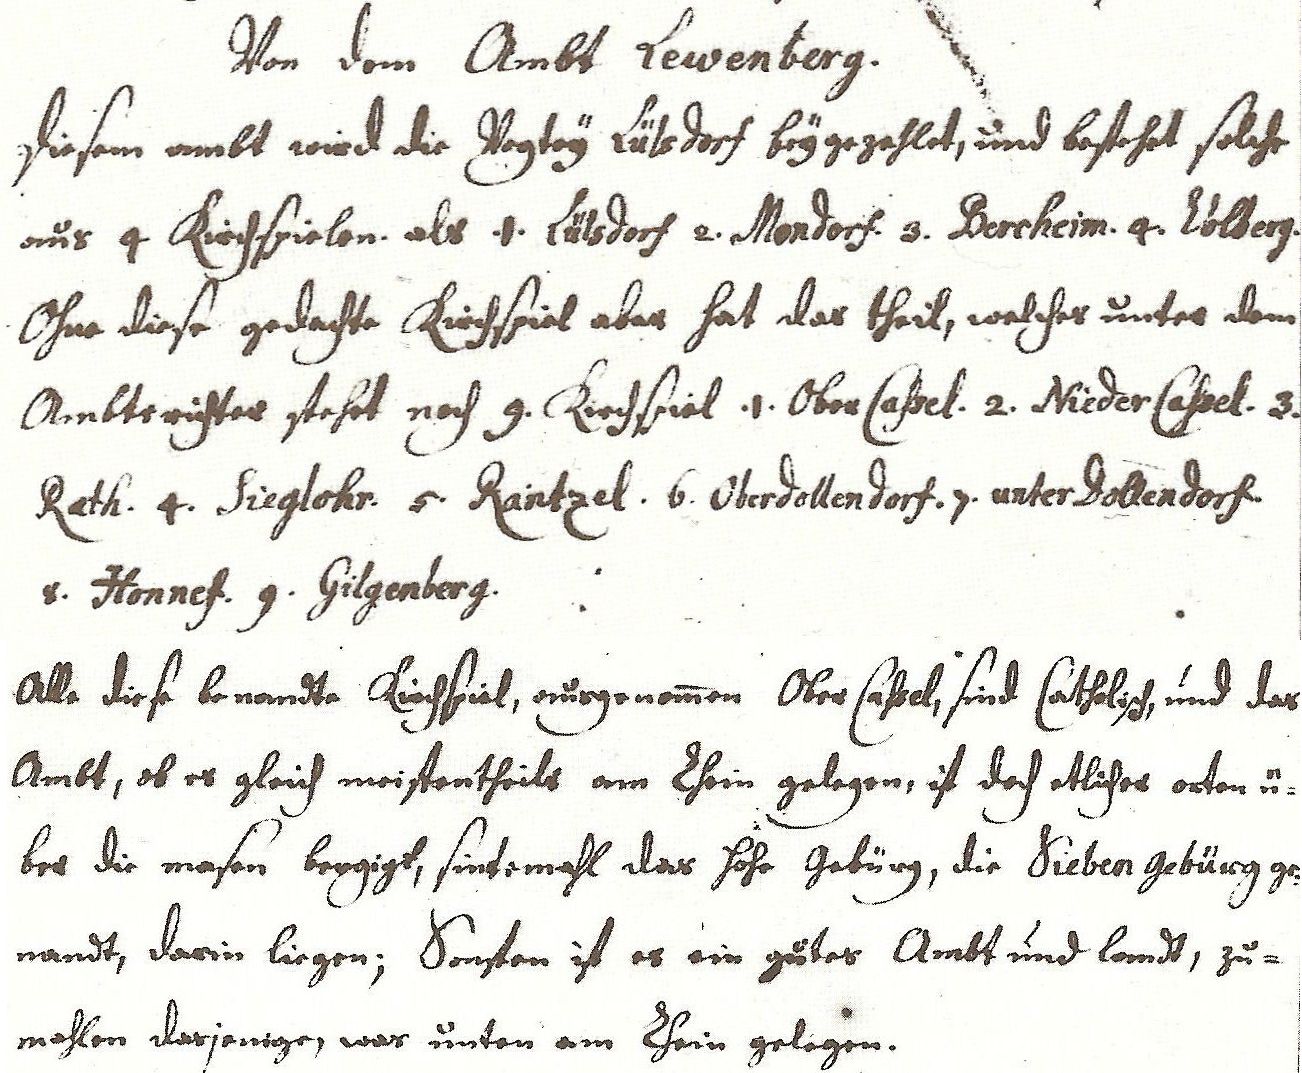 Von dem Ambt Lewenberg.
Diesem ambt wird die Vogteÿ Lülsdorf beÿgezehlet, und bestehet solche
aus 4 Kirchspielen. als .1. Lülsdorf 2. Mondorf. 3. Bercheim. 4. Eÿlberg.
Ohne diese gedachte Kirchspiel aber hat das theil, welches unter dem
Ambtsrichter stehet noch 9. Kirchspiel .1. Ober Caßel. 2. Nieder Caßel. 3.
Rath. 4. Sieglohr. 5. Rantzel. 6. Oberdollendorf. 7. unter Dollendorf.
8. Honnef. 9. Gilgenberg.
Alle diese benandte Kirchspiel, ausgenom̄en Ober Caßel, sind Catholisch, und das
Ambt, ob es gleich meistentheils am Rhein gelegen, ist doch etlicher orten ü-
ber die masen bergigt, sintemahl das hohe Gebürg, die Sieben gebürg ge-
nandt, darin liegen; Sonsten ist es ein gutes Ambt und landt, zu=
mahlen dasjenige, was unten am Rhein gelegen.